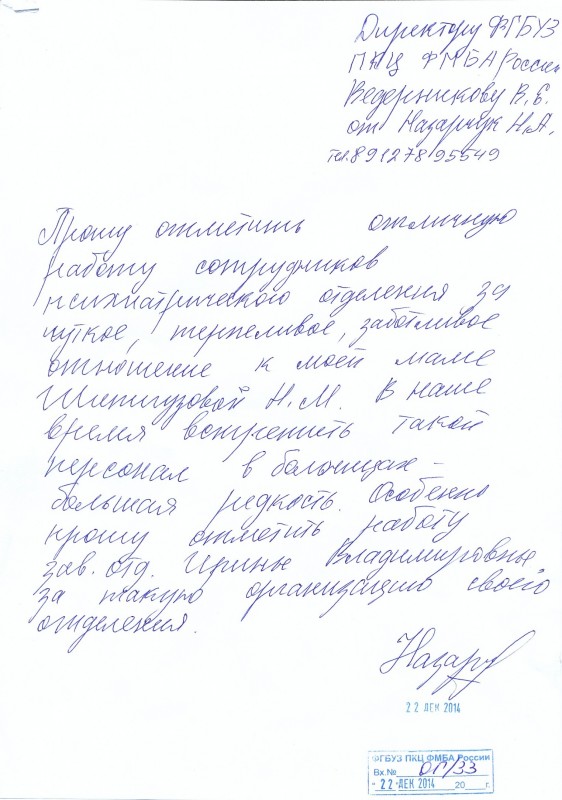 Директору ФГБУЗ
ПКЦ ФМБА России
Ведерникову В. Е.
от Назарчук Н.А.
тел. 89127895549
Прошу отметить отличную
работу сотрудников
психиатрического отделения за
чуткое, терпеливое, заботливое
отношение к моей маме
Шепигузовой Н.М. В наше
время встретить такой
персонал в больницах -
большая редкость. Особенно
прошу отметить работу
зав. отд. Ирины Владимировны
за такую организацию своего
отделения.
Назарч
22 ДЕК 2014
ФГБУЗ ПКЦ ФМБА России
Вх.№ ОГ/33
22 ДЕК 2014 20 г.